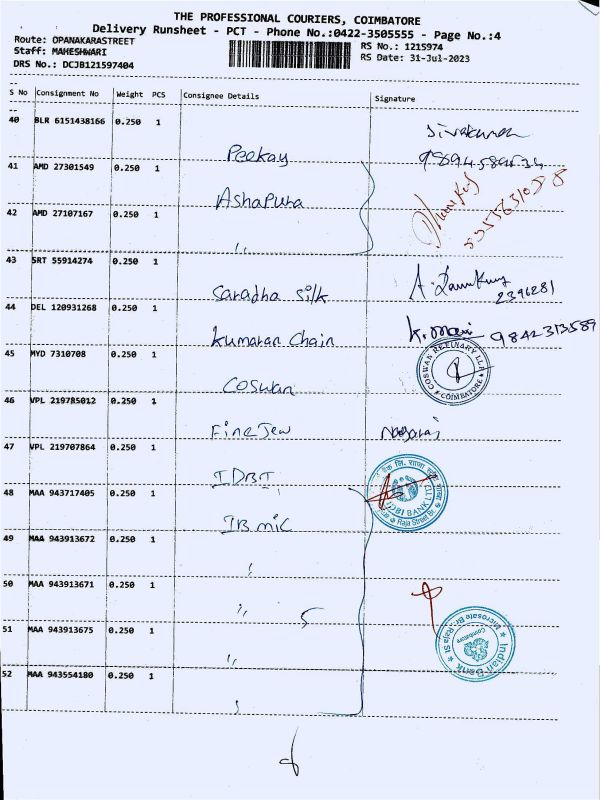 THE PROFESSIONAL COURIERS, COIMBATORE
Delivery Runsheet - PCT - Phone No.:0422-3505555 - Page No.:4
Route: OPANAKARASTREET
Staff: MAHESHWARI
DRS No.: DCJB121597404
RS No.: 1215974
RS Date: 31-Jul-2023
S No Consignment No Weight PCS Consignee Details Signature
40 BLR 6151438166 0.250 1
Peekay
41 AMD 27301549 0.250 1
Ashapura
42 AMD 27107167 0.250 1
"
43 SRT 55914274 0.250 1
Saradha silk
2396281
44 DEL 120931268 0.250 1
kumaran chain
K. mani 9842313589
45 MYD 7310708 0.250 1
Coswan
COSWAN REFINARY LLP
COIMBATORE
46 VPL 219785012 0.250 1
Fine Jew
Nagaraj
47 VPL 219707864 0.250 1
IDBI
IDBI BANK LTD
Raja Street Br.
48 MAA 943717405 0.250 1
IB mic
49 MAA 943913672 0.250 1
"
50 MAA 943913671 0.250 1
"
5
51 MAA 943913675 0.250 1
"
Indian Bank
Microsate Br., Raja St
Coimbatore
52 MAA 943554180 0.250 1
"